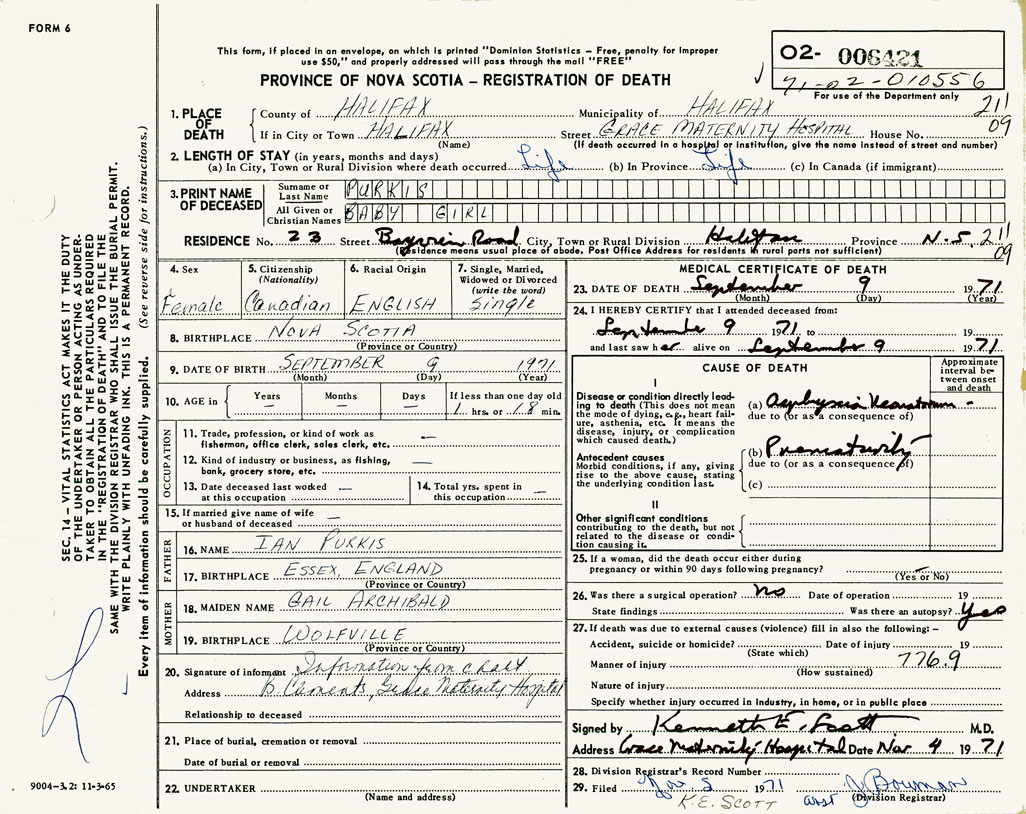 FORM 6
This form, if placed in an envelope, on which is printed "Dominion Statistics – Free, penalty for improper
use $50," and properly addressed will pass through the mail "FREE"
PROVINCE OF NOVA SCOTIA – REGISTRATION OF DEATH
02- 006421
71-02-010556
For use of the Department only
211
09
1. PLACE OF DEATH
County of HALIFAX Municipality of HALIFAX
If in City or Town HALIFAX Street GRACE MATERNITY HOSPITAL House No.
(Name) (If death occurred in a hospital or institution, give the name instead of street and number)
2. LENGTH OF STAY (in years, months and days)
(a) In City, Town or Rural Division where death occurred Life (b) In Province Life (c) In Canada (if immigrant)
3. PRINT NAME OF DECEASED
Surname or Last Name PURKIS
All Given or Christian Names BABY GIRL
RESIDENCE No. 23 Street Road City, Town or Rural Division Halifax Province N.S. 211
(Residence means usual place of abode. Post Office Address for residents in rural parts not sufficient) 09
4. Sex
Female
5. Citizenship
(Nationality)
Canadian
6. Racial Origin
ENGLISH
7. Single, Married,
Widowed or Divorced
(write the word)
Single
8. BIRTHPLACE NOVA SCOTIA
(Province or Country)
9. DATE OF BIRTH SEPTEMBER 9 1971
(Month) (Day) (Year)
10. AGE in
Years Months Days If less than one day old
— — — 1 hrs. or 18 min.
OCCUPATION
11. Trade, profession, or kind of work as
fisherman, office clerk, sales clerk, etc. —
12. Kind of industry or business, as fishing,
bank, grocery store, etc. —
13. Date deceased last worked —
at this occupation
14. Total yrs. spent in
this occupation —
15. If married give name of wife
or husband of deceased —
FATHER
16. NAME IAN PURKIS
17. BIRTHPLACE ESSEX, ENGLAND
(Province or Country)
MOTHER
18. MAIDEN NAME GAIL ARCHIBALD
19. BIRTHPLACE WOLFVILLE
(Province or Country)
20. Signature of informant Information from chart
Address B. Clements, Grace Maternity Hospital
Relationship to deceased
21. Place of burial, cremation or removal
Date of burial or removal
22. UNDERTAKER
(Name and address)
MEDICAL CERTIFICATE OF DEATH
23. DATE OF DEATH September 9 1971
(Month) (Day) (Year)
24. I HEREBY CERTIFY that I attended deceased from:
September 9 1971 to 19
and last saw her alive on September 9 1971
CAUSE OF DEATH
Approximate
interval be-
tween onset
and death
I
Disease or condition directly lead-
ing to death (This does not mean
the mode of dying, e.g., heart fail-
ure, asthenia, etc. It means the
disease, injury, or complication
which caused death.)
(a) Asphyxia Neonatorum -
due to (or as a consequence of)
Antecedent causes
Morbid conditions, if any, giving
rise to the above cause, stating
the underlying condition last.
(b) Prematurity
due to (or as a consequence of)
(c)
II
Other significant conditions
contributing to the death, but not
related to the disease or condi-
tion causing it.
25. If a woman, did the death occur either during
pregnancy or within 90 days following pregnancy? —
(Yes or No)
26. Was there a surgical operation? no Date of operation 19
State findings Was there an autopsy? Yes
27. If death was due to external causes (violence) fill in also the following: –
Accident, suicide or homicide? Date of injury 19
(State which)
776.9
Manner of injury
(How sustained)
Nature of injury
Specify whether injury occurred in industry, in home, or in public place
Signed by Kenneth E. Scott M.D.
Address Grace Maternity Hospital Date Nov 4 1971
28. Division Registrar's Record Number
29. Filed Nov 5 1971 asst J Bowman
K.E. SCOTT (Division Registrar)
SEC. 14 – VITAL STATISTICS ACT MAKES IT THE DUTY
OF THE UNDERTAKER OR PERSON ACTING AS UNDER-
TAKER TO OBTAIN ALL THE PARTICULARS REQUIRED
IN THE "REGISTRATION OF DEATH" AND TO FILE THE
SAME WITH THE DIVISION REGISTRAR WHO SHALL ISSUE THE BURIAL PERMIT.
WRITE PLAINLY WITH UNFADING INK. THIS IS A PERMANENT RECORD.
Every item of information should be carefully supplied. (See reverse side for instructions.)
9004–3.2: 11-3-65